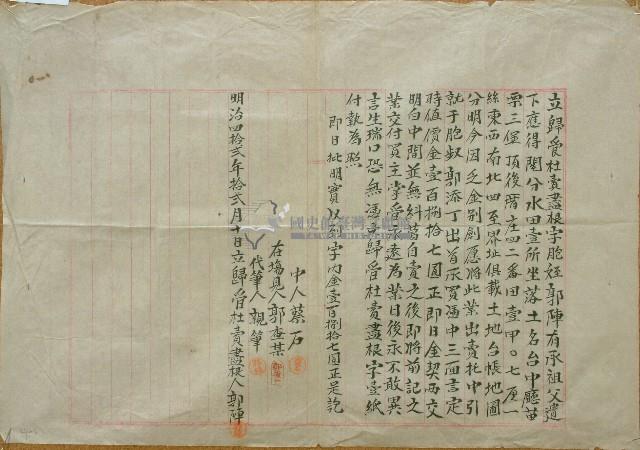 立歸受杜賣盡根字胞姪郭陣有承祖父遺
下應得鬮分水田壹所坐落土名台中廳苗
栗三堡頂後厝庄四二番田壹甲〇七厘一
絲東西南北四至界址俱載土地台帳地圖
分明今因乏金別創愿將此業出賣托中引
就于胞叔郭添丁出首承買憑中三面言定
時值價金壹百捌拾七圓正即日金契兩交
明白中間並無糾葛自賣之後即將前記之
業交付買主掌管永遠為業日後永不敢異
言生端口恐無憑立歸受杜賣盡根字壹紙
付執為照
即日批明實收到字內金壹百捌拾七圓正足訖
中人蔡石
在場見人郭查某
代筆人親筆
明治四拾弍年拾弍月十日立歸受杜賣盡根人郭陣
國史館臺灣文獻館